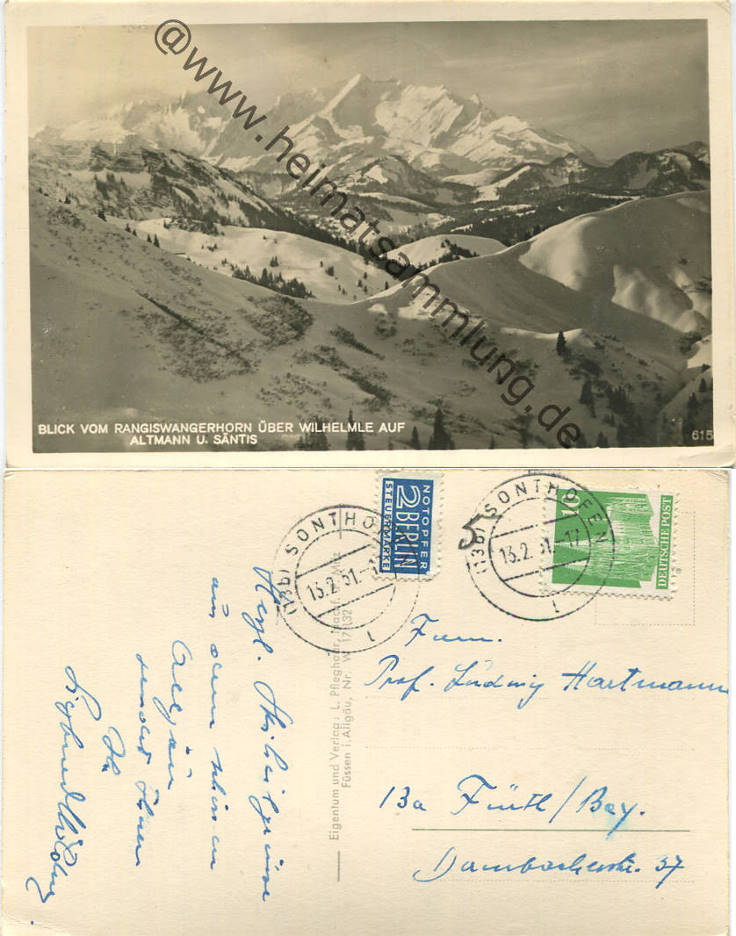 @www.heimatsammlung.de
BLICK VOM RANGISWANGERHORN ÜBER WILHELMLE AUF
ALTMANN U. SÄNTIS
615
NOTOPFER
2 BERLIN
STEUERMARKE
(13b) SONTHOFEN
13.2.51.-17
1
(13b) SONTHOFEN
13.2.51.-17
1
10
DEUTSCHE POST
Herzl. Skiheilgrüsse
aus dem schönen
Allgäu
sendet Ihnen
Ihr
Eigentum und Verlag: L. Pfleghofer, Nachf.
Füssen i. Allgäu, Nr. W
Fam.
Prof. Ludwig Hartmann
13a Fürth/Bay.
Dambacherstr. 37